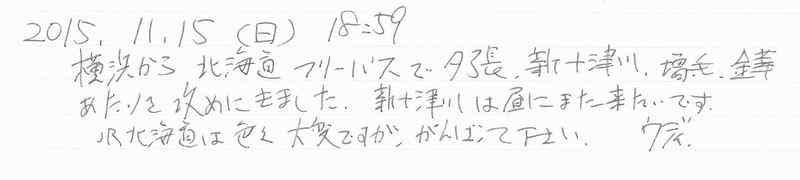 2015. 11. 15 (日) 18:59
横浜から 北海道 フリーパスで 夕張、新十津川、増毛、金華
あたりを 攻めにきました. 新十津川は昼にまた来たいです.
JR北海道は色々大変ですが、がんばって下さい. ウディ.